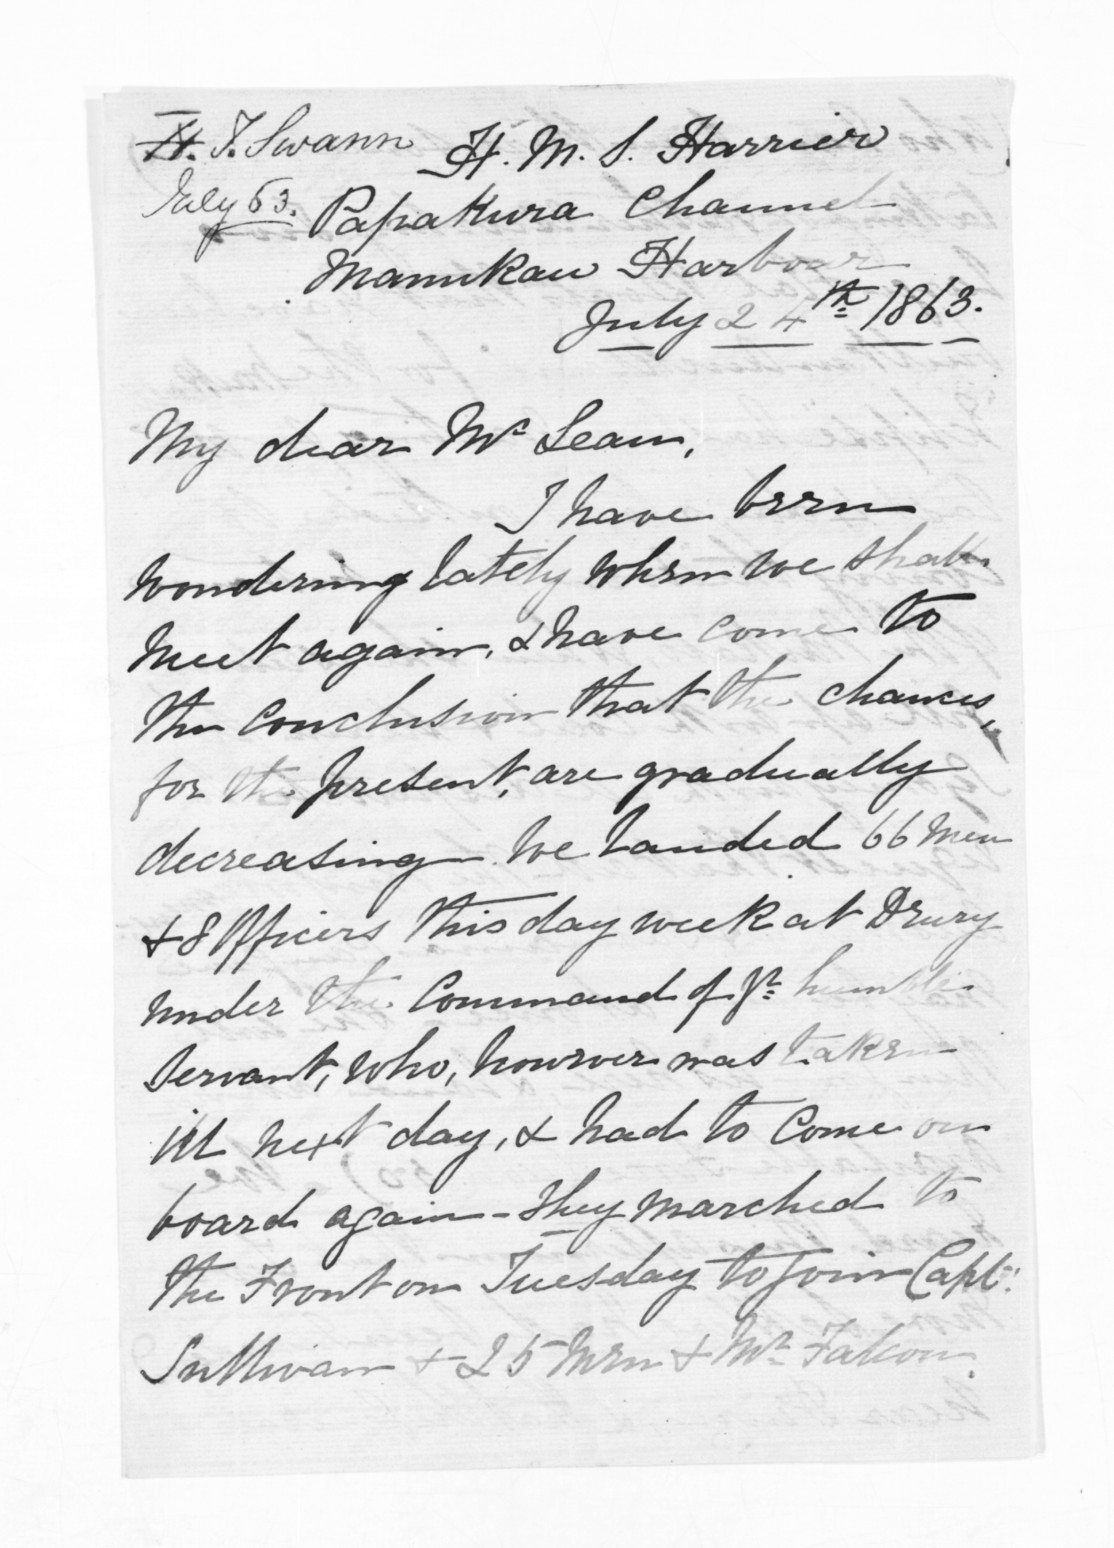 H. F. Swann
July 63.
H. M. S. Harrier
Papakura Channel
Manukau Harbour
July 24th 1863.
My dear McLean,
I have been
wondering lately when we shall
meet again, & have come to
the conclusion that the chances,
for the present, are gradually
decreasing. We landed 66 men
& 8 Officers this day week at Drury
under the command of yr humble
servant, who, however was taken
ill next day, & had to come on
board again - They marched to
the Front on Tuesday to join Capt:
Sullivan & 25 men & Mr Falcon.